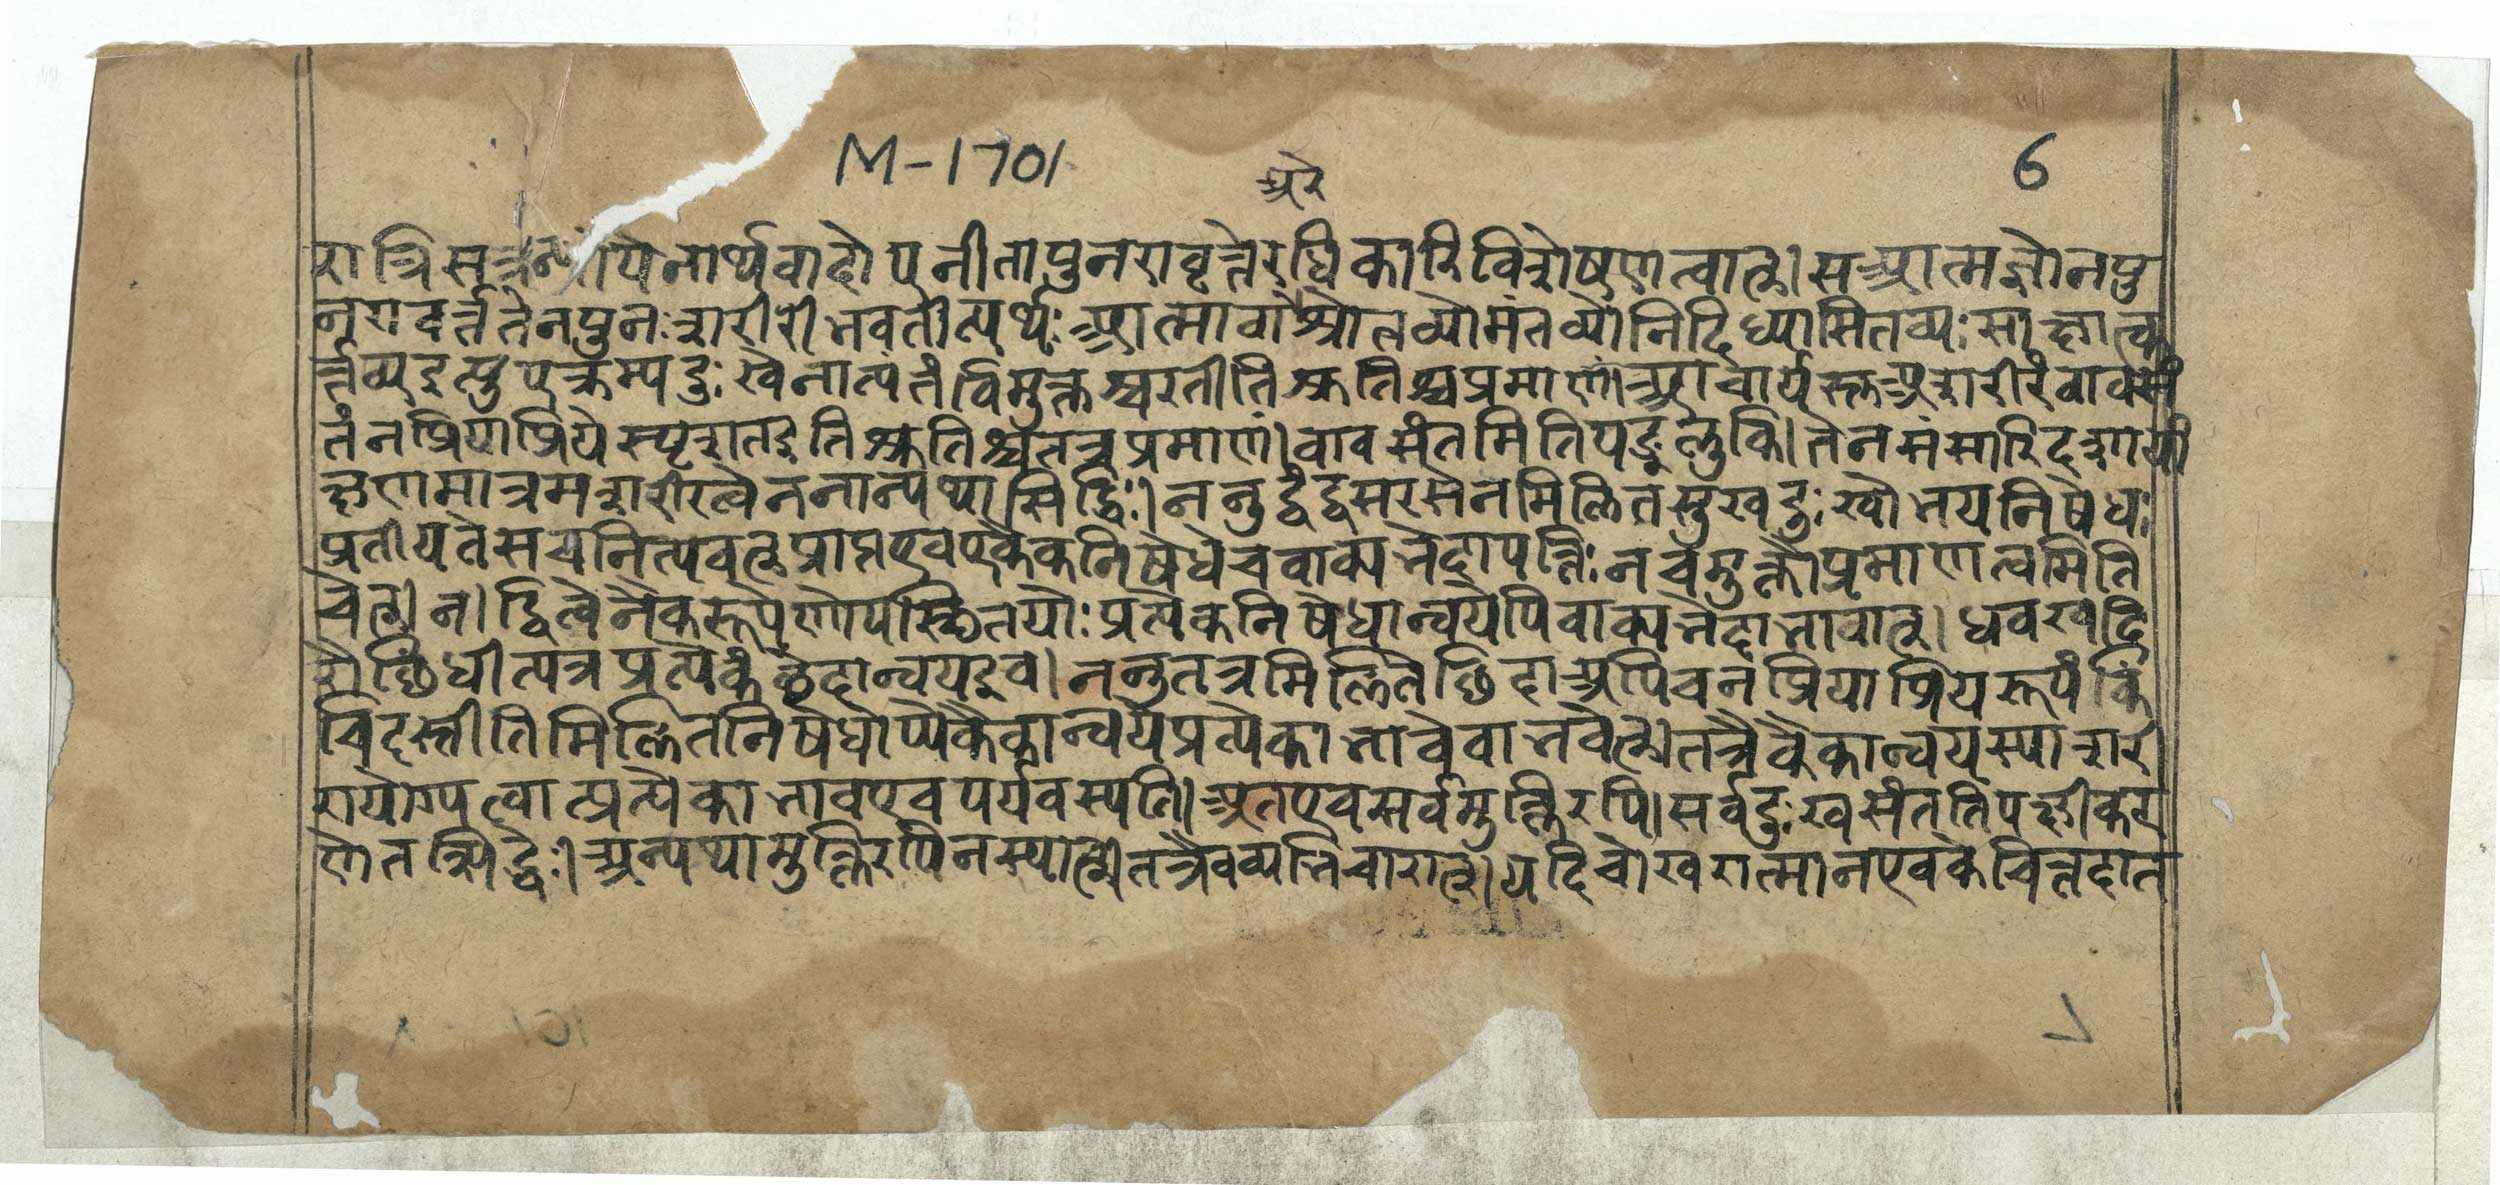 M-1701
अरे
6
रात्रिसत्रन्यायेनार्थवादोपनीतापुनरावृत्तेरधिकारिविशेषणत्वात्। सआत्मज्ञोनपु
नरावर्त्ततेनपुनःशरीरीभवतीत्यर्थः आत्मावाश्रोतव्योमंतव्योनिदिध्यासितव्यःसाक्षात्क
र्त्तव्यइत्युपक्रम्यदुःखेनात्यंतंविमुक्तश्चरतीतिश्रुतिश्चप्रमाणं। आचार्यस्तुअशरीरंवावसं
तंनप्रियाप्रियेस्पृशतइतिश्रुतिश्चतत्रप्रमाणं। वावसंतमितियङ्लुकि। तेनसंसारिदशायां
क्षणमात्रमशरीरत्वेननान्यथासिद्धिः। ननुद्वंद्वसरसेनमिलितसुखदुःखोभयनिषेधः
प्रतीयतेसचनित्यवत्प्राप्तएवएकैकनिषेधेचवाक्यभेदापत्तिःनचमुक्तौप्रमाणत्वमिति
चेत्। न। द्वित्वेनैकरूपेणोपस्थितयोः प्रत्येकनिषेधान्वयेपिवाक्यभेदाभावात्। धवखदि
रौछिंधीत्यत्रप्रत्येकंछेदान्वयइव। नन्तुतत्रमिलितेछिदाअपिचनप्रियाप्रियरूपंकिं
चिदस्तीतिमिलितनिषेधोप्येकैकान्वयेप्रत्येकाभावेवाभवेत्। तत्रैवैकान्वयस्याशरी
रायोग्यत्वात्प्रत्येकाभावएवपर्यवस्यति। अतएवसर्वमुक्तिरपि। सर्वदुःखसंततिपक्षीकर
णेतत्सिद्धेः। अन्यथामुक्तिरपिनस्यात्। तत्रैवव्यभिचारात्। यदिचोखरात्मानएवकेचित्तदात